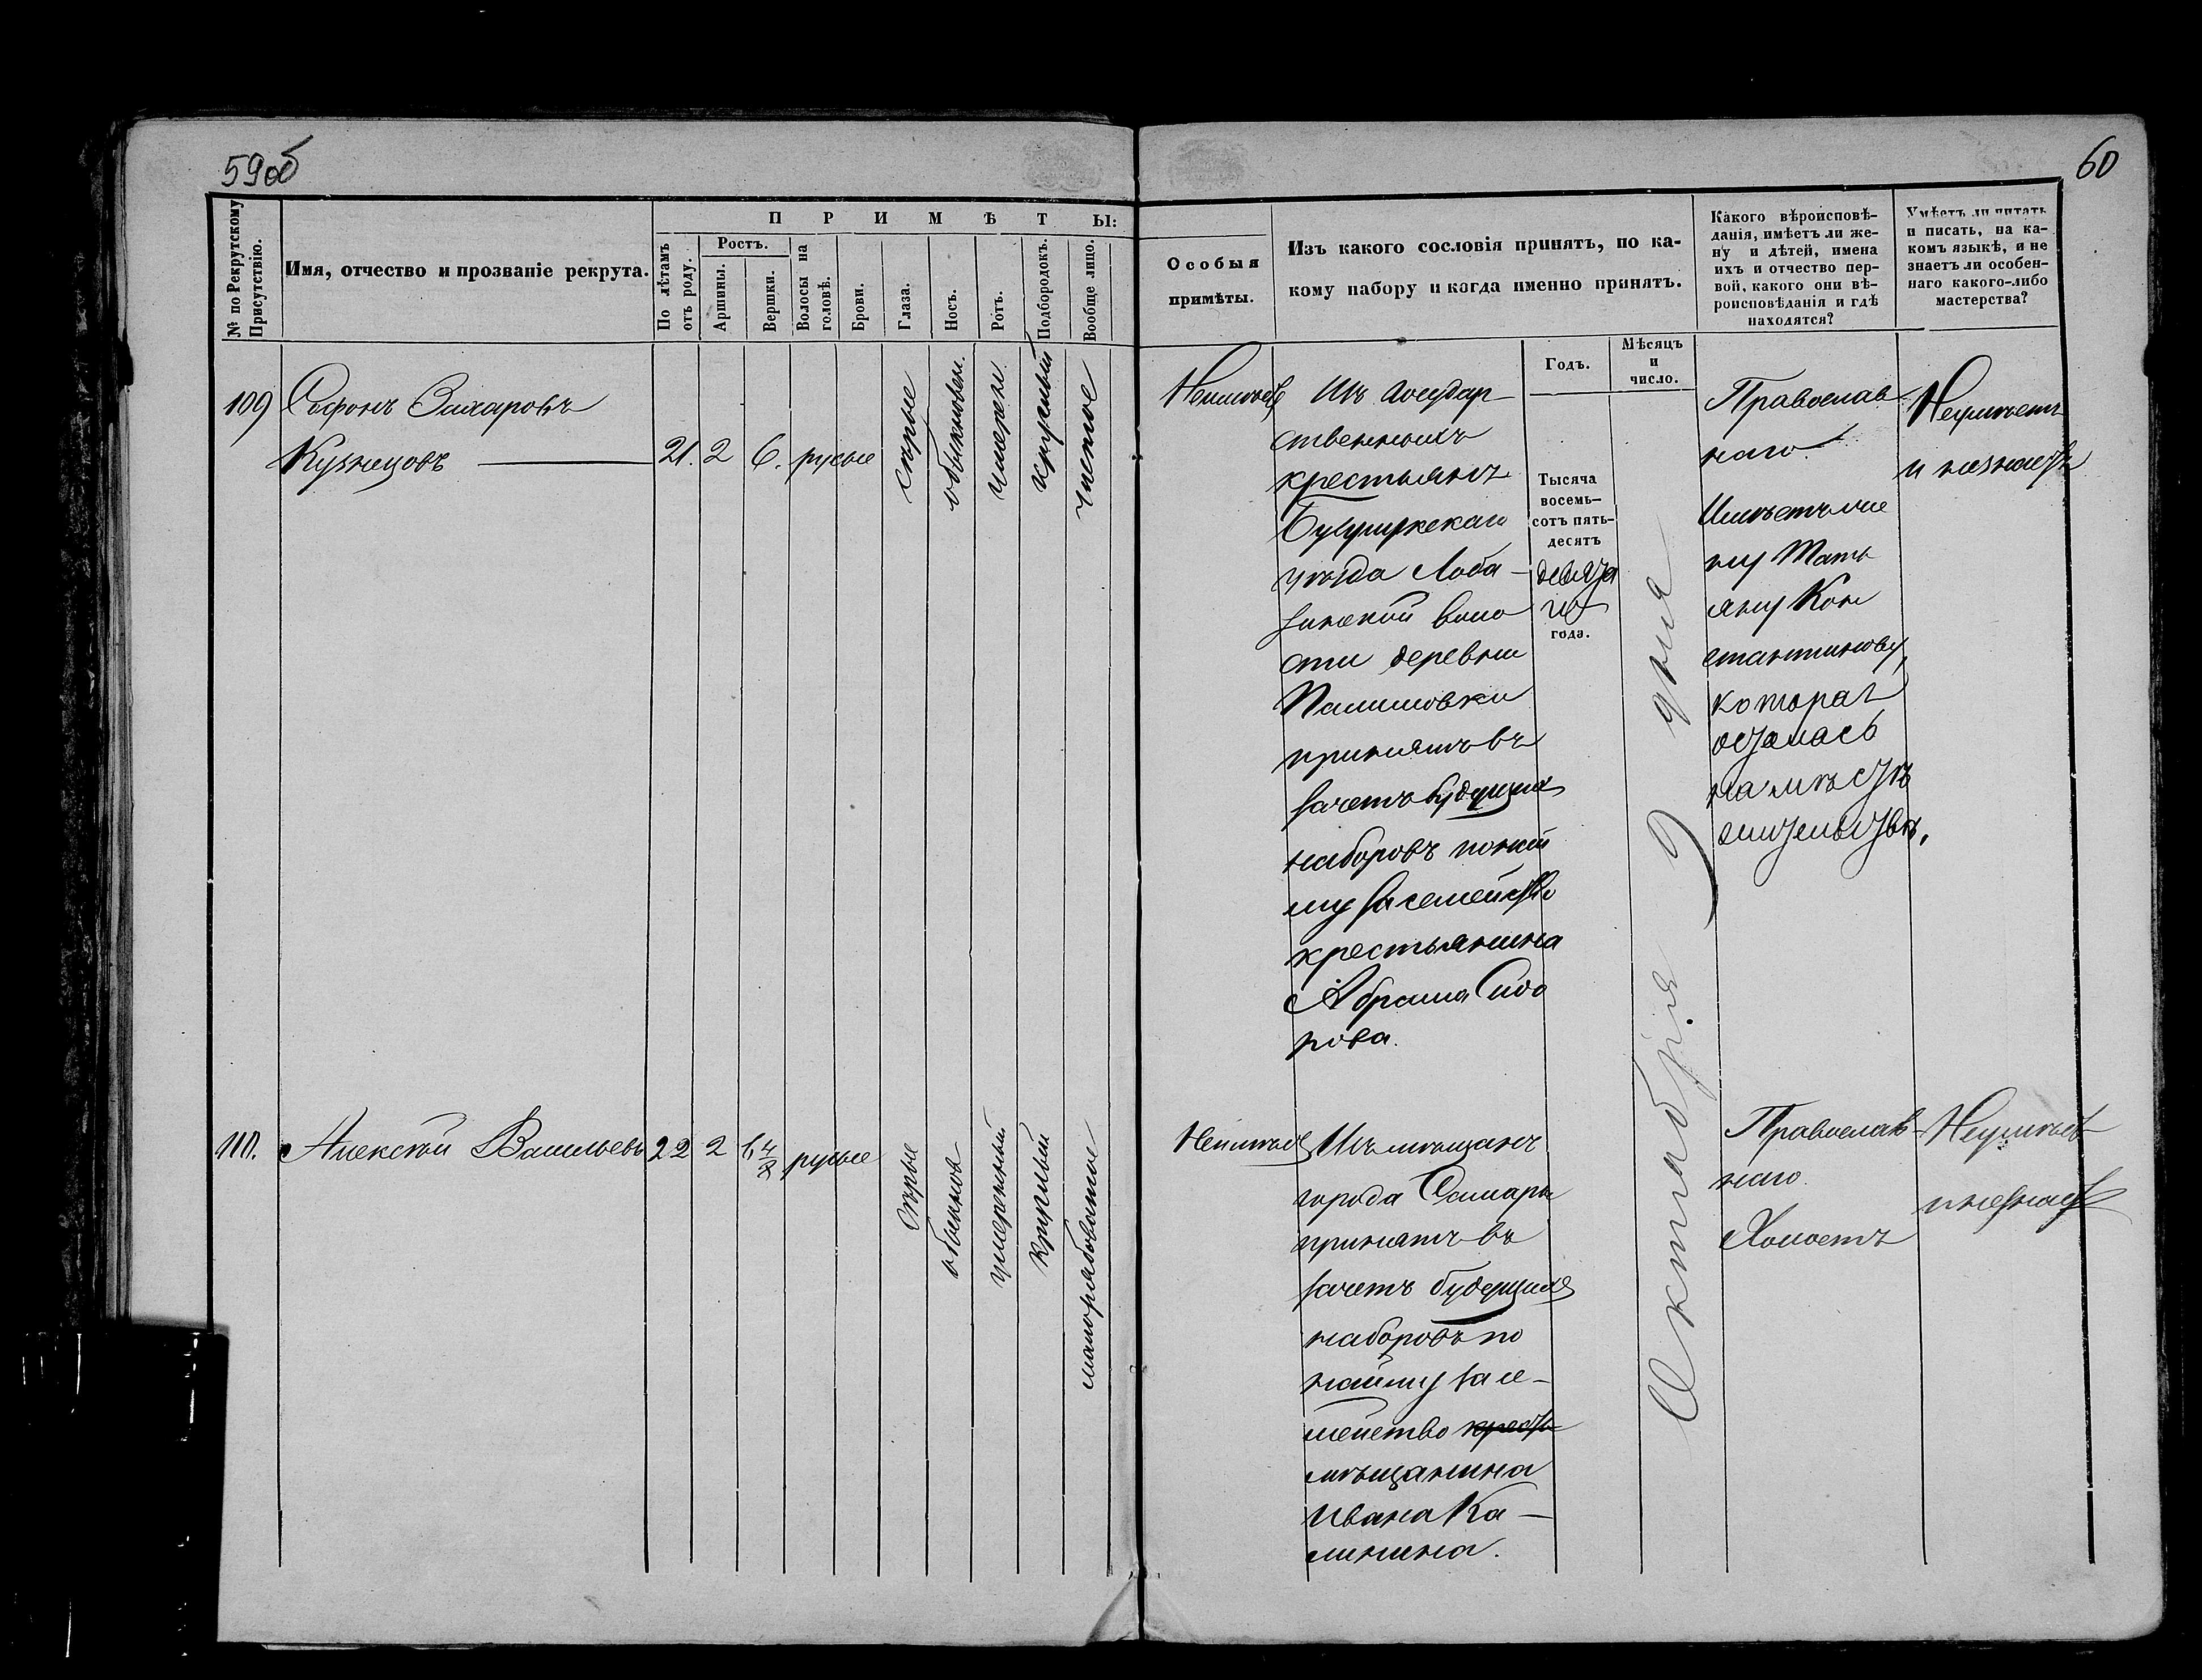 59об
60
№ по Рекрутскому Присутствію.
Имя, отчество и прозваніе рекрута.
ПРИМѢТЫ:
По лѣтамъ отъ роду.
Ростъ.
Аршины.
Вершки.
Волосы на головѣ.
Брови.
Глаза.
Носъ.
Ротъ.
Подбородокъ.
Вообще лицо.
Особыя
примѣты.
Изъ какого сословія принятъ, по ка-
кому набору и когда именно принятъ.
Какого вѣроисповѣ-
данія, имѣетъ ли же-
ну и дѣтей, имена
ихъ и отчество пер-
вой, какого они вѣ-
роисповѣданія и гдѣ
находятся?
Умѣетъ ли читать
и писать, на ка-
комъ языкѣ, и не
знаетъ ли особен-
наго какого-либо
мастерства?
Годъ.
Мѣсяцъ
и
число.
109
Сафонъ Захаровъ
Кузнецовъ
21. 2 6. русые
сѣрые
обыкновен.
умерен
круглый
чистое
Неимѣетъ
Изъ государ
ственныхъ
крестьянъ
уѣзда Лоба-
зинской воло
сти деревни
принятъ въ
зачетъ будущихъ
наборовъ по най
му за семейство
крестьянина
Абрама Сидо
рова.
Тысяча
восемь-
сотъ пять-
десятъ
девята
го
года.
Октября 9 дня
Православ
наго
Имѣетъ же
ну Тать
яну Кон
стантинову,
которая
осталась
на мѣстѣ
жительства.
Неумѣетъ
и незнаетъ
110.
Алексѣй Васильевъ
22 2 4 4/8 русые
Сѣрые
обыкнов
умеренный
круглый
малорябоватое
Неимѣетъ
Изъ мѣщанъ
города Самары
принятъ въ
зачетъ будущихъ
наборовъ по
найму за се-
мейство кресть
мѣщанина
Ивана Ка-
линина.
Православ-
наго.
Холостъ
Неумѣетъ
и незнаетъ